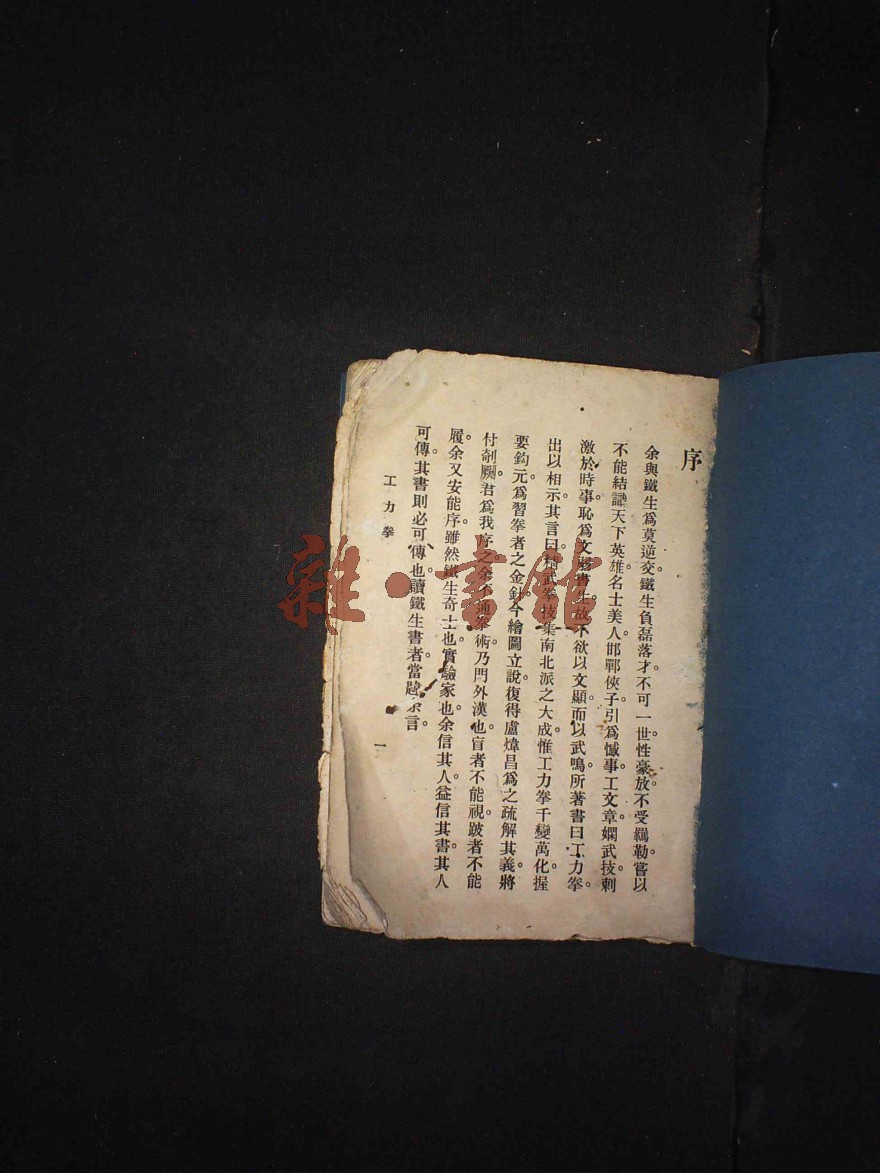 序
余與鐵生爲莫逆交。鐵生負磊落才。不可一世。性豪放。不受羈勒。嘗以
不能結識天下英雄名士美人。邯鄲俠子。引爲憾事。工文章。嫻武技。刺
激於時事。恥爲文弱書生。故不欲以文顯。而以武鳴。所著書曰工力拳。
出以相示。其言曰。精武拳技。集南北派之大成。惟工力拳千變萬化。握
要鈎元。爲習拳者之金針。今繪圖立說。復得盧煒昌爲之疏解其義。將
付剞劂。君爲我序之。余不通拳術。乃門外漢也。盲者不能視。跛者不能
履。余又安能序。雖然。鐵生奇士也。實驗家也。余信其人。益信其書。其人
可傳。其書則必可傳也。讀鐵生書者。當韙余言。
工力拳
一
雜·書館